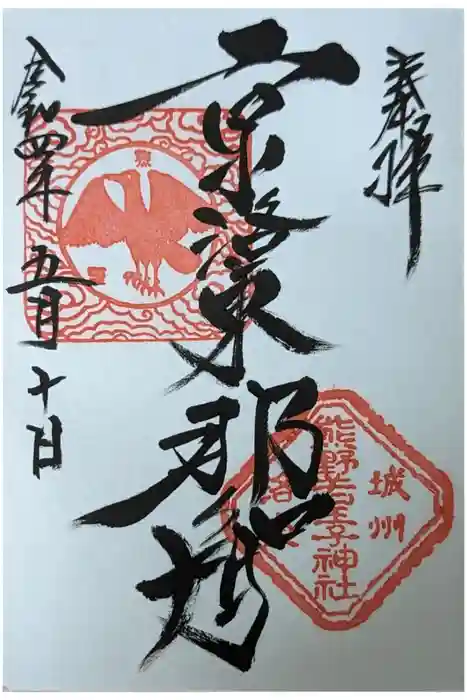 奉拝
京洛東那智
令和四年五月十日
城州
熊野若王子神社
洛